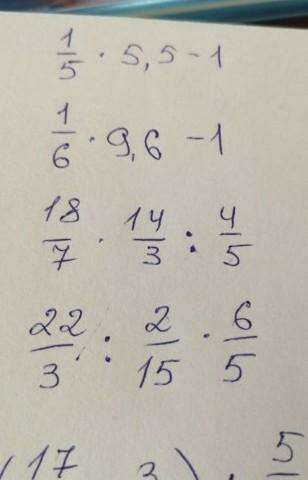 1/5 · 5,5 - 1
1/6 · 9,6 - 1
18/7 · 14/3 : 4/5
22/3 : 2/15 · 6/5
(17 3) · 5